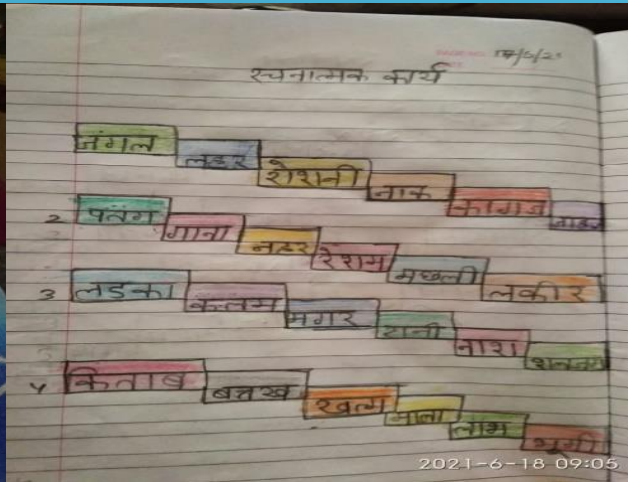 रचनात्मक कार्य
जंगल लहर रोशनी नाक कागज
2 पतंग गाना नहर रेशम मछली लकीर
3 लड़का कलम मगर रानी नाश
4 किताब बत्तख खत्म माला लाभ भूमी
2021-6-18 09:05